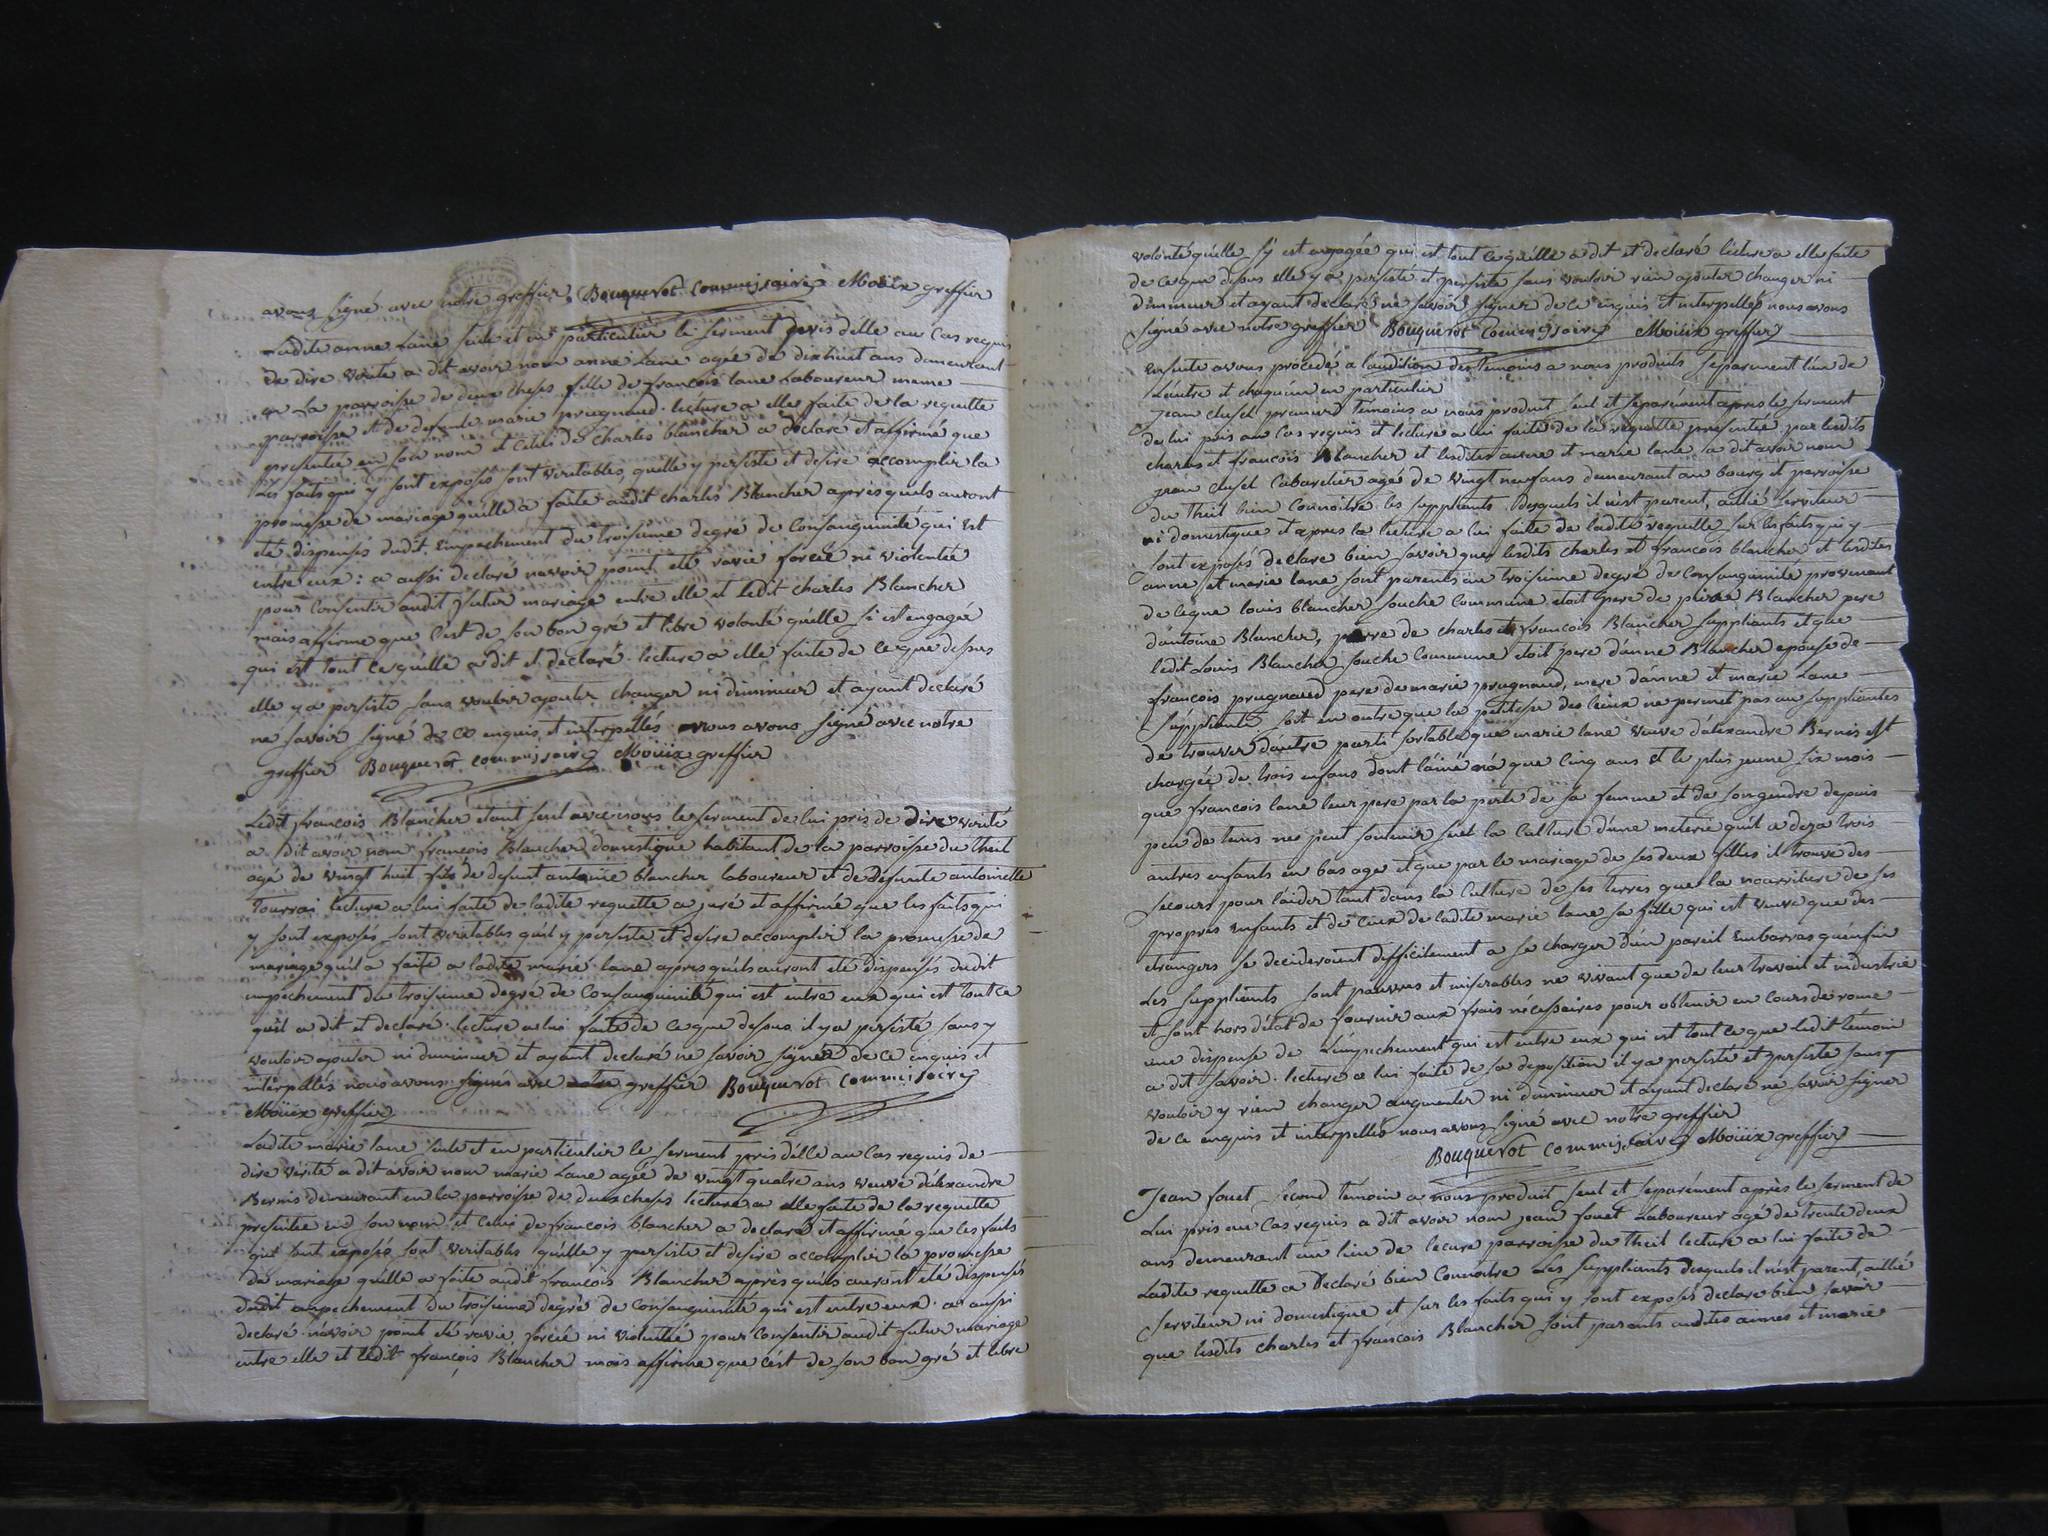 avons signé avec notre greffier Bouquerot commissaire Moüix greffier
Ladite anne lane seule et en particulier le serment pris d'elle au cas requis
de dire vérité a dit avoir nom anne Lane agée de dixhuit ans demeurant
en la parroisse de deux cheses fille de françois lane Laboureur meme
parroisse et de defunte marie prugnaud. lecture a elle faite de la requette
presentée en son nom et celui de Charles blancher a declaré et affirmé que
les faits qui y sont exposés sont veritables, qu'elle y persiste et desire accomplir la
promesse de mariage qu'elle a faite audit charles Blancher après qu'els auront
été dispensés dudit Empechement du troisieme degré de Consanguinité qui est
entre eux : a aussi declaré n'avoir point eté ravie forcée ni violentée
pour consentir audit futur mariage entre elle et ledit charles Blancher
mais affirme que C'est de son bon gré et libre volonté qu'elle si est engagée
qui est tout ce qu'elle a dit et declaré. lecture a elle faite de ce que dessus
elle y a persisté sans vouloir ajouter changer ni diminuer et ayant declaré
ne savoir signé de ce enquis et interpellés nous avons signé avec notre
greffier Bouquerot commissaire Moüix greffier
Ledit françois Blancher etant seul avec nous le serment de lui pris de dire vérité
a dit avoir nom françois Blancher domestique habitant de la parroisse du theil
agé de vingt huit fils de defunt antoine blancher laboureur et de defunte antoinette
Tourrai lecture a lui faite de ladite requette a juré et affirmé que les faits qui
y sont exposés sont veritables qu'il y persiste et desire accomplir la promesse de
mariage qu'il a faite a ladite marie lane apres qu'ils auront eté dispensés dudit
empechement du troisieme degré de Consanguinité qui est entre eux qui est tout ce
qu'il a dit et declaré. lecture a lui faite de ce que dessus il y a persisté sans y
vouloir ajouter ni diminuer et ayant declaré ne savoir signer de ce enquis et
interpellés nous avons signés avec notre greffier Bouquerot commissaire
Moüix greffier
Ladite marie lane seule et en particulier le serment pris d'elle au cas requis de
dire vérité a dit avoir nom marie Lane agée de vingt quatre ans veuve d'alexandre
Bernis demeurant en la parroisse de deux cheses lecture a elle faite de la requette
presentée en son nom et celui de françois blancher a declaré et affirmé que les faits
qui sont exposés sont veritables qu'elle y persiste et desire accomplir la promesse
de mariage qu'elle a faite audit françois Blancher après qu'ils auront été dispensés
dudit empechement du troisieme degré de consanguinité qui est entre eux. a aussi
declaré n'avoir point été ravie, forcée ni violentée pour consentir audit futur mariage
entre elle et ledit françois Blancher mais affirme que c'est de son bon gré et libre
volonté qu'elle s'y est engagée qui est tout ce qu'elle a dit et declaré lecture a elle faite
de ce que dessus elle y a persisté et persiste sans vouloir rien ajouter changer ni
diminuer et ayant declaré ne savoir signer de ce enquis et interpellés nous avons
signé avec notre greffier Bouquerot commissaire Moüix greffier
Ensuite avons procédé a l'audition des temoins a nous produits separement l'un de
l'autre et chaqu'un en particulier
jean clusel premier Temoins a nous produit seul et separément apres le serment
de lui pris au cas requis et lecture a lui faite de la requette presentée par lesdits
charles et françois Blancher et lesdites anne et marie lane, a dit avoir nom
jean clusel Cabaretier agé de vingt neuf ans demeurant au bourg et parroisse
du theil bien connoitre les suppliants desquels il n'est parent, allié serviteur
ni domestique et apres la lecture a lui faite de ladite requette sur les faits qui y
sont exposés declare bien savoir que lesdits charles et françois blancher et lesdites
anne et marie lane sont parents au troisieme degré de consanguinité provenant
de ce que louis blancher souche Commune etoit pere de pierre Blancher pere
d'antoine Blancher, pere de charles et françois Blancher suppliants et que
ledit Louis Blancher souche Commune etoit pere d'anne Blancher epouse de
françois prugnaud pere de marie prugnaud, mere d'anne et marie Lane
suppliante soit en outre que la petitesse des lieux ne permet pas au suppliantes
de trouver d'autre parti sortable que marie lane veuve d'alexandre Bernis est
chargée de trois enfans dont l'ainé n'a que cinq ans et le plus jeune six mois
que françois lane leur pere par la perte de sa femme et de son gendre depuis
peu de tems ne peut soutenir seul la Culture d'une meterie qu'il a deja trois
autres enfants en bas age et que par le mariage de ses deux filles il trouve des
secours pour l'aider tant dans la culture de ses terres que la nourriture de ses
propres enfants et de ceux de ladite marie lane sa fille qui est veuve que des
etrangers se decideroient difficilement a se charger d'un pareil Embarras qu'enfin
les suppliants sont pauvres et miserables ne vivant que de leur travail et industrie
et sont hors d'état de fournir aux frais nécessaires pour obtenir en Cours de rome
une dispense de l'empechement qui est entre eux qui est tout ce que ledit temoin
a dit savoir. lecture a lui faite de sa deposition il y a persisté et persiste sans
vouloir y rien changer augmenter ni diminuer et ayant declaré ne savoir signer
de ce enquis et interpellés nous avons signé avec notre greffier
Bouquerot commissaire Moüix greffier
Jean fouet second temoin a nous produit seul et separément après le serment de
Lui pris au Cas requis a dit avoir nom jean fouet Laboureur agé de trente deux
ans demeurant au lieu de lecure parroisse du theil lecture a lui faite de
Ladite requette a declaré bien Connoitre Les suppliants desquels il n'est parent, allié
serviteur ni domestique et sur les faits qui y sont exposés declare bien savoir
que lesdits charles et françois Blancher sont parents auxdites annes et marie